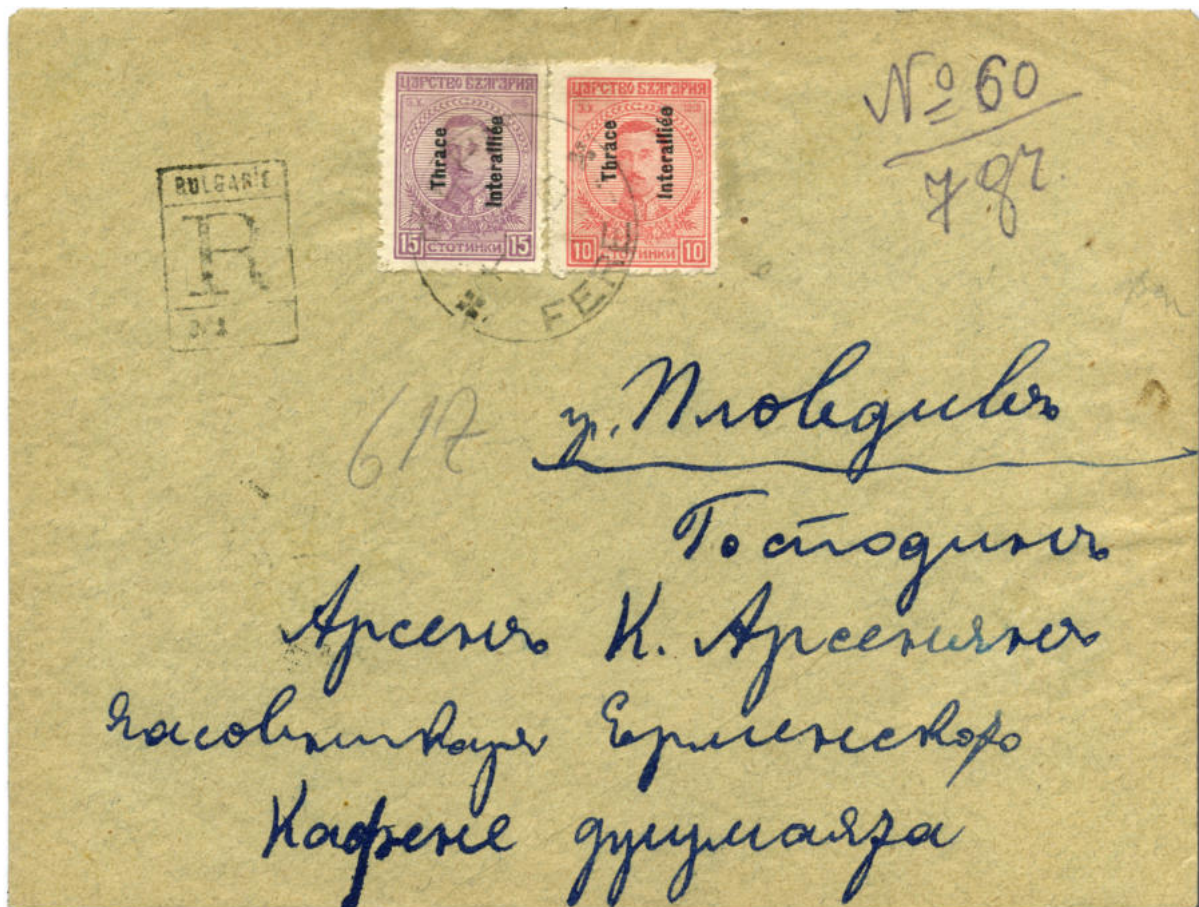 ЦАРСТВО БЪЛГАРИЯ
Thrace
Interalliée
15 СТОТИНКИ 15
ЦАРСТВО БЪЛГАРИЯ
Thrace
Interalliée
10 СТОТИНКИ 10
№ 60
7 gr.
BULGARIE
R
617
гр. Пловдивъ
Господинъ
Арсенъ К. Арсениянъ
часовникаря Ерменското
Кафене